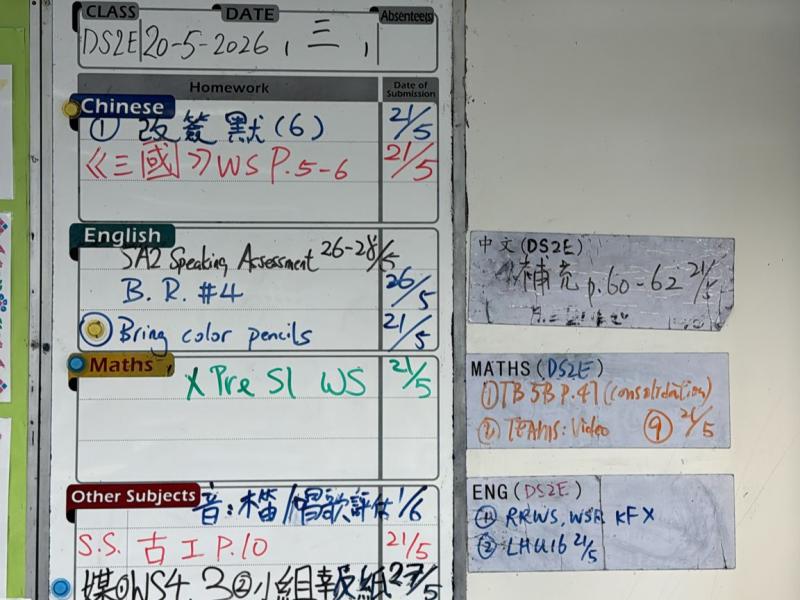 CLASS DATE Absentee(s)
DS2E 20-5-2026, 三,
Homework Date of Submission
Chinese
① 改簽默(6) 21/5
《三國》WS P.5-6 21/5
English
SA2 Speaking Assessment 26-28/5
B. R. #4 26/5
Bring color pencils 21/5
Maths
X Pre S1 WS 21/5
Other Subjects
音:木笛/唱歌評估 1/6
S.S. 古工 P.10 21/5
媒①WS4.3②小組報紙 27/5
中文(DS2E)
補充 p.60-62 21/5
MATHS (DS2E)
①TB 5B P.47 (consolidation)
② TEAMS: Video ⑨ 21/5
ENG (DS2E)
① RRWS, WSR KF X
② LHU16 21/5